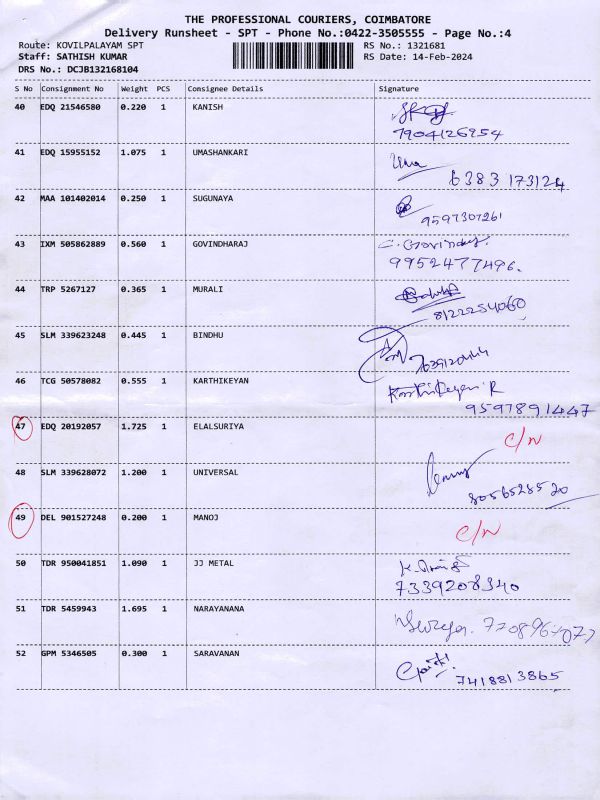 THE PROFESSIONAL COURIERS, COIMBATORE
Delivery Runsheet - SPT - Phone No.:0422-3505555 - Page No.:4
Route: KOVILPALAYAM SPT RS No.: 1321681
Staff: SATHISH KUMAR RS Date: 14-Feb-2024
DRS No.: DCJB132168104
S No Consignment No Weight PCS Consignee Details Signature
40 EDQ 21546580 0.220 1 KANISH
7904126954
41 EDQ 15955152 1.075 1 UMASHANKARI Uma
6383 173124
42 MAA 101402014 0.250 1 SUGUNAYA
9597307261
43 IXM 505862889 0.560 1 GOVINDHARAJ C. Govindaraj.
9952477496.
44 TRP 5267127 0.365 1 MURALI
8122254060
45 SLM 339623248 0.445 1 BINDHU
46 TCG 50578082 0.555 1 KARTHIKEYAN Karthikeyan R
9597891447
47 EDQ 20192057 1.725 1 ELALSURIYA C/N
48 SLM 339628072 1.200 1 UNIVERSAL
8056528520
49 DEL 901527248 0.200 1 MANOJ C/N
50 TDR 950041851 1.090 1 JJ METAL
7339208340
51 TDR 5459943 1.695 1 NARAYANANA
52 GPM 5346505 0.300 1 SARAVANAN
7418813865